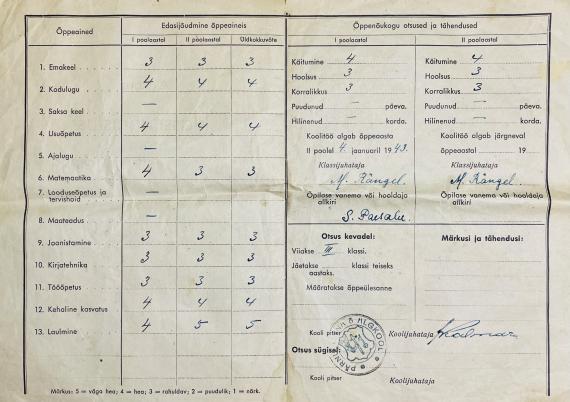 Õppeained
Edasijõudmine õppeaineis
I poolaastal II poolaastal Üldkokkuvõte
1. Emakeel 3 3 3
2. Kodulugu 4 4 4
3. Saksa keel —
4. Usuõpetus 4 4 4
5. Ajalugu —
6. Matemaatika 4 3 3
7. Looduseõpetus ja tervishoid —
8. Maateadus —
9. Joonistamine 3 3 3
10. Kirjatehnika 3 3 3
11. Tööõpetus 3 3 3
12. Kehaline kasvatus 4 4 4
13. Laulmine 4 5 5
Märkus: 5 = väga hea; 4 = hea; 3 = rahuldav; 2 = puudulik; 1 = nõrk.
Õppenõukogu otsused ja tähendused
I poolaastal II poolaastal
Käitumine 4 Käitumine 4
Hoolsus 3 Hoolsus 3
Korralikkus 3 Korralikkus 3
Puudunud — päeva. Puudunud — päeva.
Hilinenud — korda. Hilinenud — korda.
Koolitöö algab õppeaasta Koolitöö algab järgneval
II poolel 4. jaanuaril 1943. õppeaastal 19
Klassijuhataja Klassijuhataja
M. Kängel. M. Kängel.
Õpilase vanema või hooldaja allkiri Õpilase vanema või hooldaja allkiri
Otsus kevadel: Märkusi ja tähendusi:
Viiakse III klassi.
Jäetakse klassi teiseks aastaks.
Määratakse õppeülesanne
Kooli pitser Koolijuhataja
Otsus sügisel:
Kooli pitser Koolijuhataja